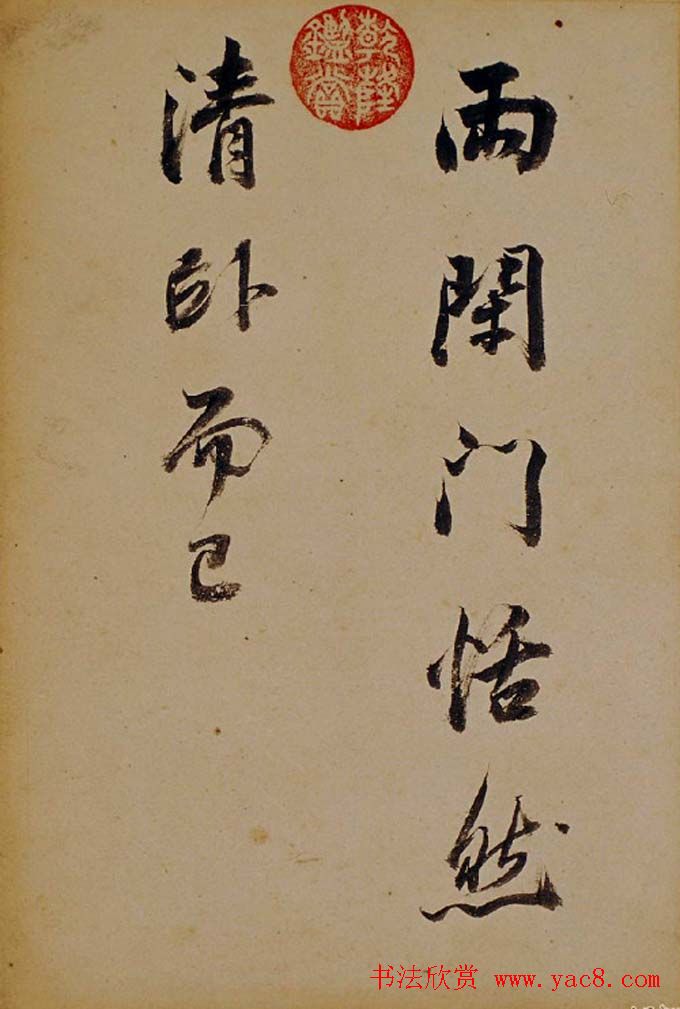 雨閑门恬然
清卧而已
乾隆
鑑賞
书法欣赏 www.yac8.com